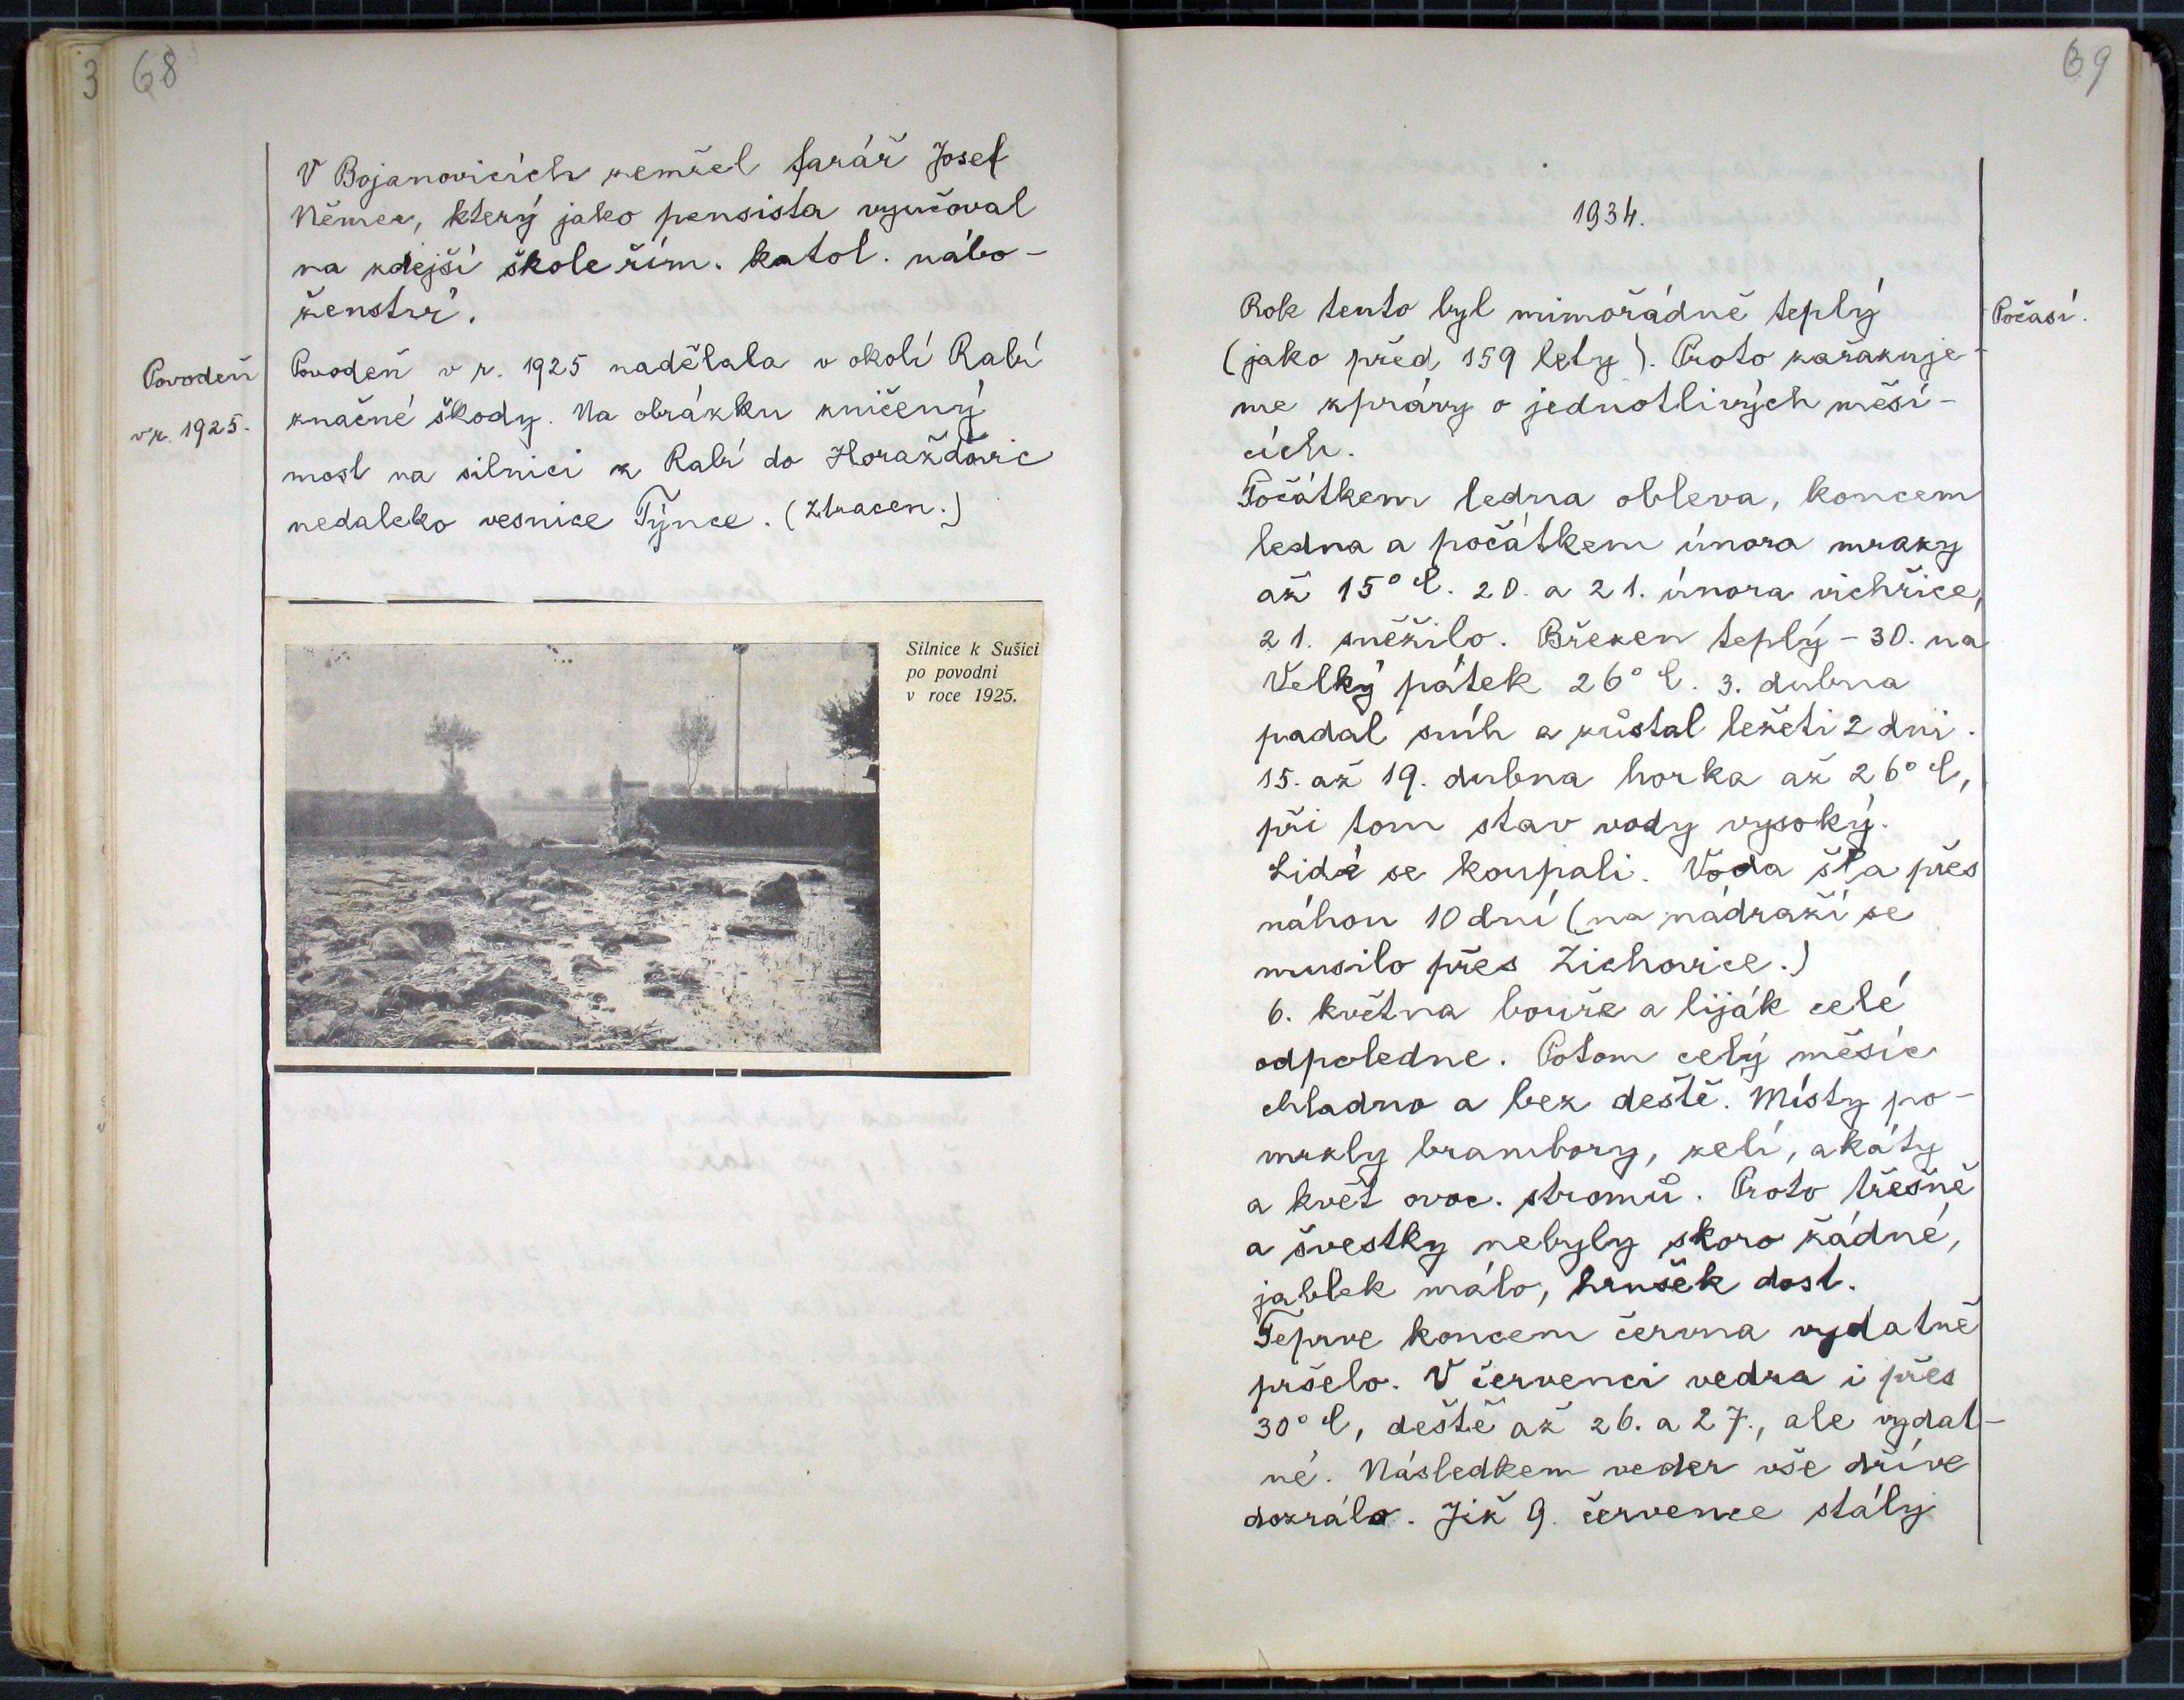 3
68
V Bojanovicích zemřel farář Josef
Němec, který jako pensista vyučoval
na zdejší škole řím. katol. nábo-
ženství.
Povodeň
v r. 1925.
Povodeň v r. 1925 nadělala v okolí Rabí
značné škody. Na obrázku zničený
most na silnici z Rabí do Horažďovic
nedaleko vesnice Týnce. (Ztracen.)
Silnice k Sušici
po povodni
v roce 1925.
69
1934.
Počasí.
Rok tento byl mimořádně teplý
(jako před 159 lety). Proto zařazuje-
me zprávy o jednotlivých měsí-
cích.
Počátkem ledna obleva, koncem
ledna a počátkem února mrazy
až 15° C. 20. a 21. února vichřice,
21. sněžilo. Březen teplý - 30. na
Velký pátek 26° C. 3. dubna
padal sníh a zůstal ležeti 2 dni.
15. až 19. dubna horka až 26° C,
při tom stav vody vysoký.
Lidé se koupali. Voda šla přes
náhon 10 dní (na nádraží se
musilo přes Žichovice.)
6. května bouře a liják celé
odpoledne. Potom celý měsíc
chladno a bez deště. Místy po-
mrzly brambory, zelí, akáty
a květ ovoc. stromů. Proto třešně
a švestky nebyly skoro žádné,
jablek málo, hrušek dost.
Teprve koncem června vydatně
pršelo. V červenci vedra i přes
30° C, deště až 26. a 27., ale vydat-
né. Následkem veder vše dříve
dozrálo. Již 9. července stály